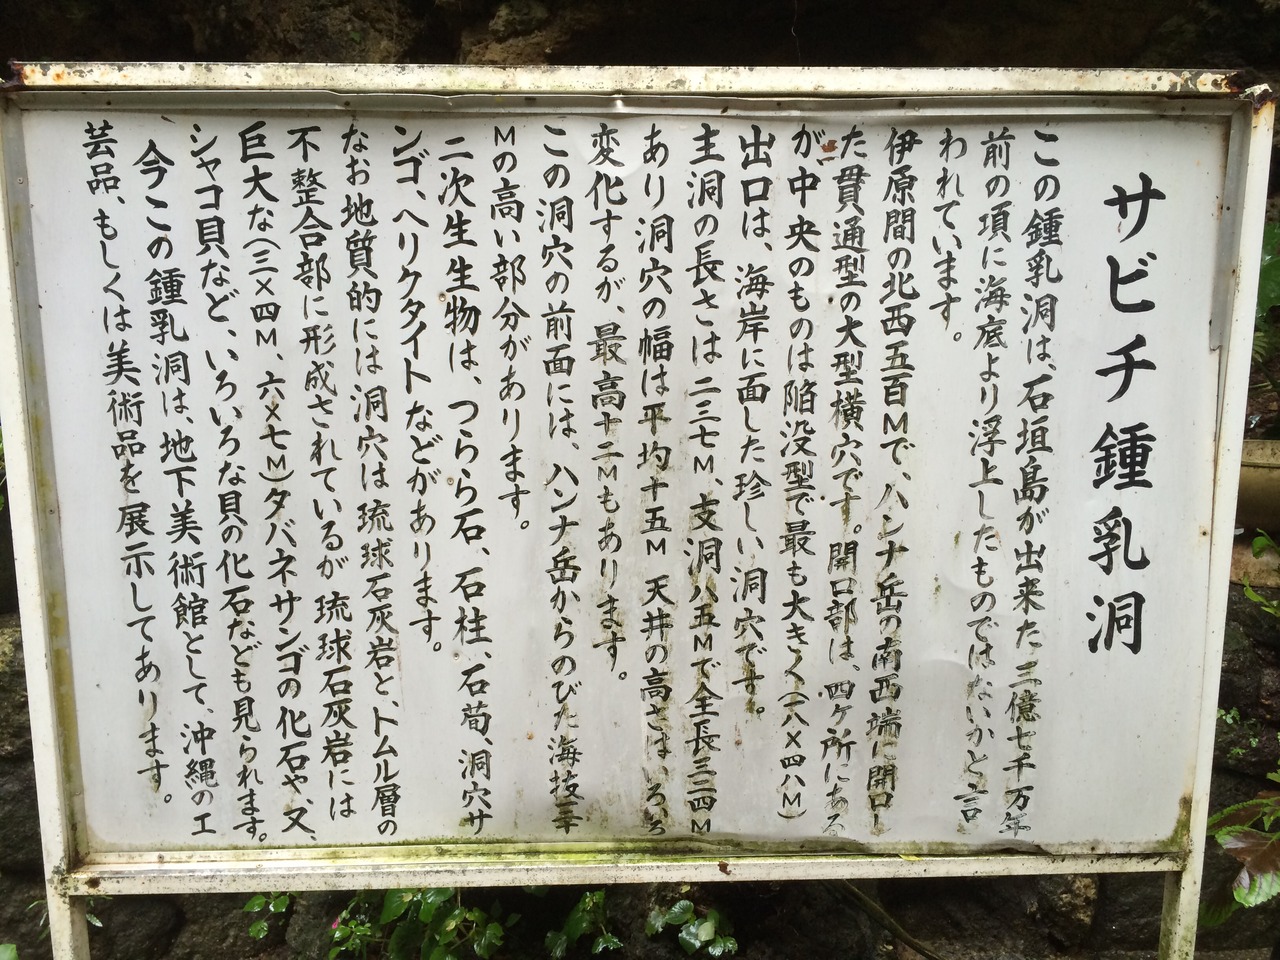 サビチ鍾乳洞
この鍾乳洞は、石垣島が出来た三億七千万年
前の項に海底より浮上したものではないかと言
われています。
伊原間の北西五百Mで、ハンナ岳の南西端に開口し
た貫通型の大型横穴です。開口部は、四ヶ所にある
が中央のものは陥没型で最も大きく(一八×四八M)
出口は、海岸に面した珍しい洞穴です。
主洞の長さは二三七M、支洞八五Mで全長三二四M
あり洞穴の幅は平均十五M 天井の高さはいろいろ
変化するが、最高十二Mもあります。
この洞穴の前面には、ハンナ岳からのびた海抜
Mの高い部分があります。
二次生生物は、つらら石、石柱、石荀、洞穴サ
ンゴ、ヘリクタイトなどがあります。
なお地質的には洞穴は琉球石灰岩と、トムル層の
不整合部に形成されているが琉球石灰岩には
巨大な(三×四M、六×七M)タバネサンゴの化石や、又、
シャコ貝など、いろいろな貝の化石なども見られます。
今この鍾乳洞は、地下美術館として、沖縄の工
芸品、もしくは美術品を展示してあります。